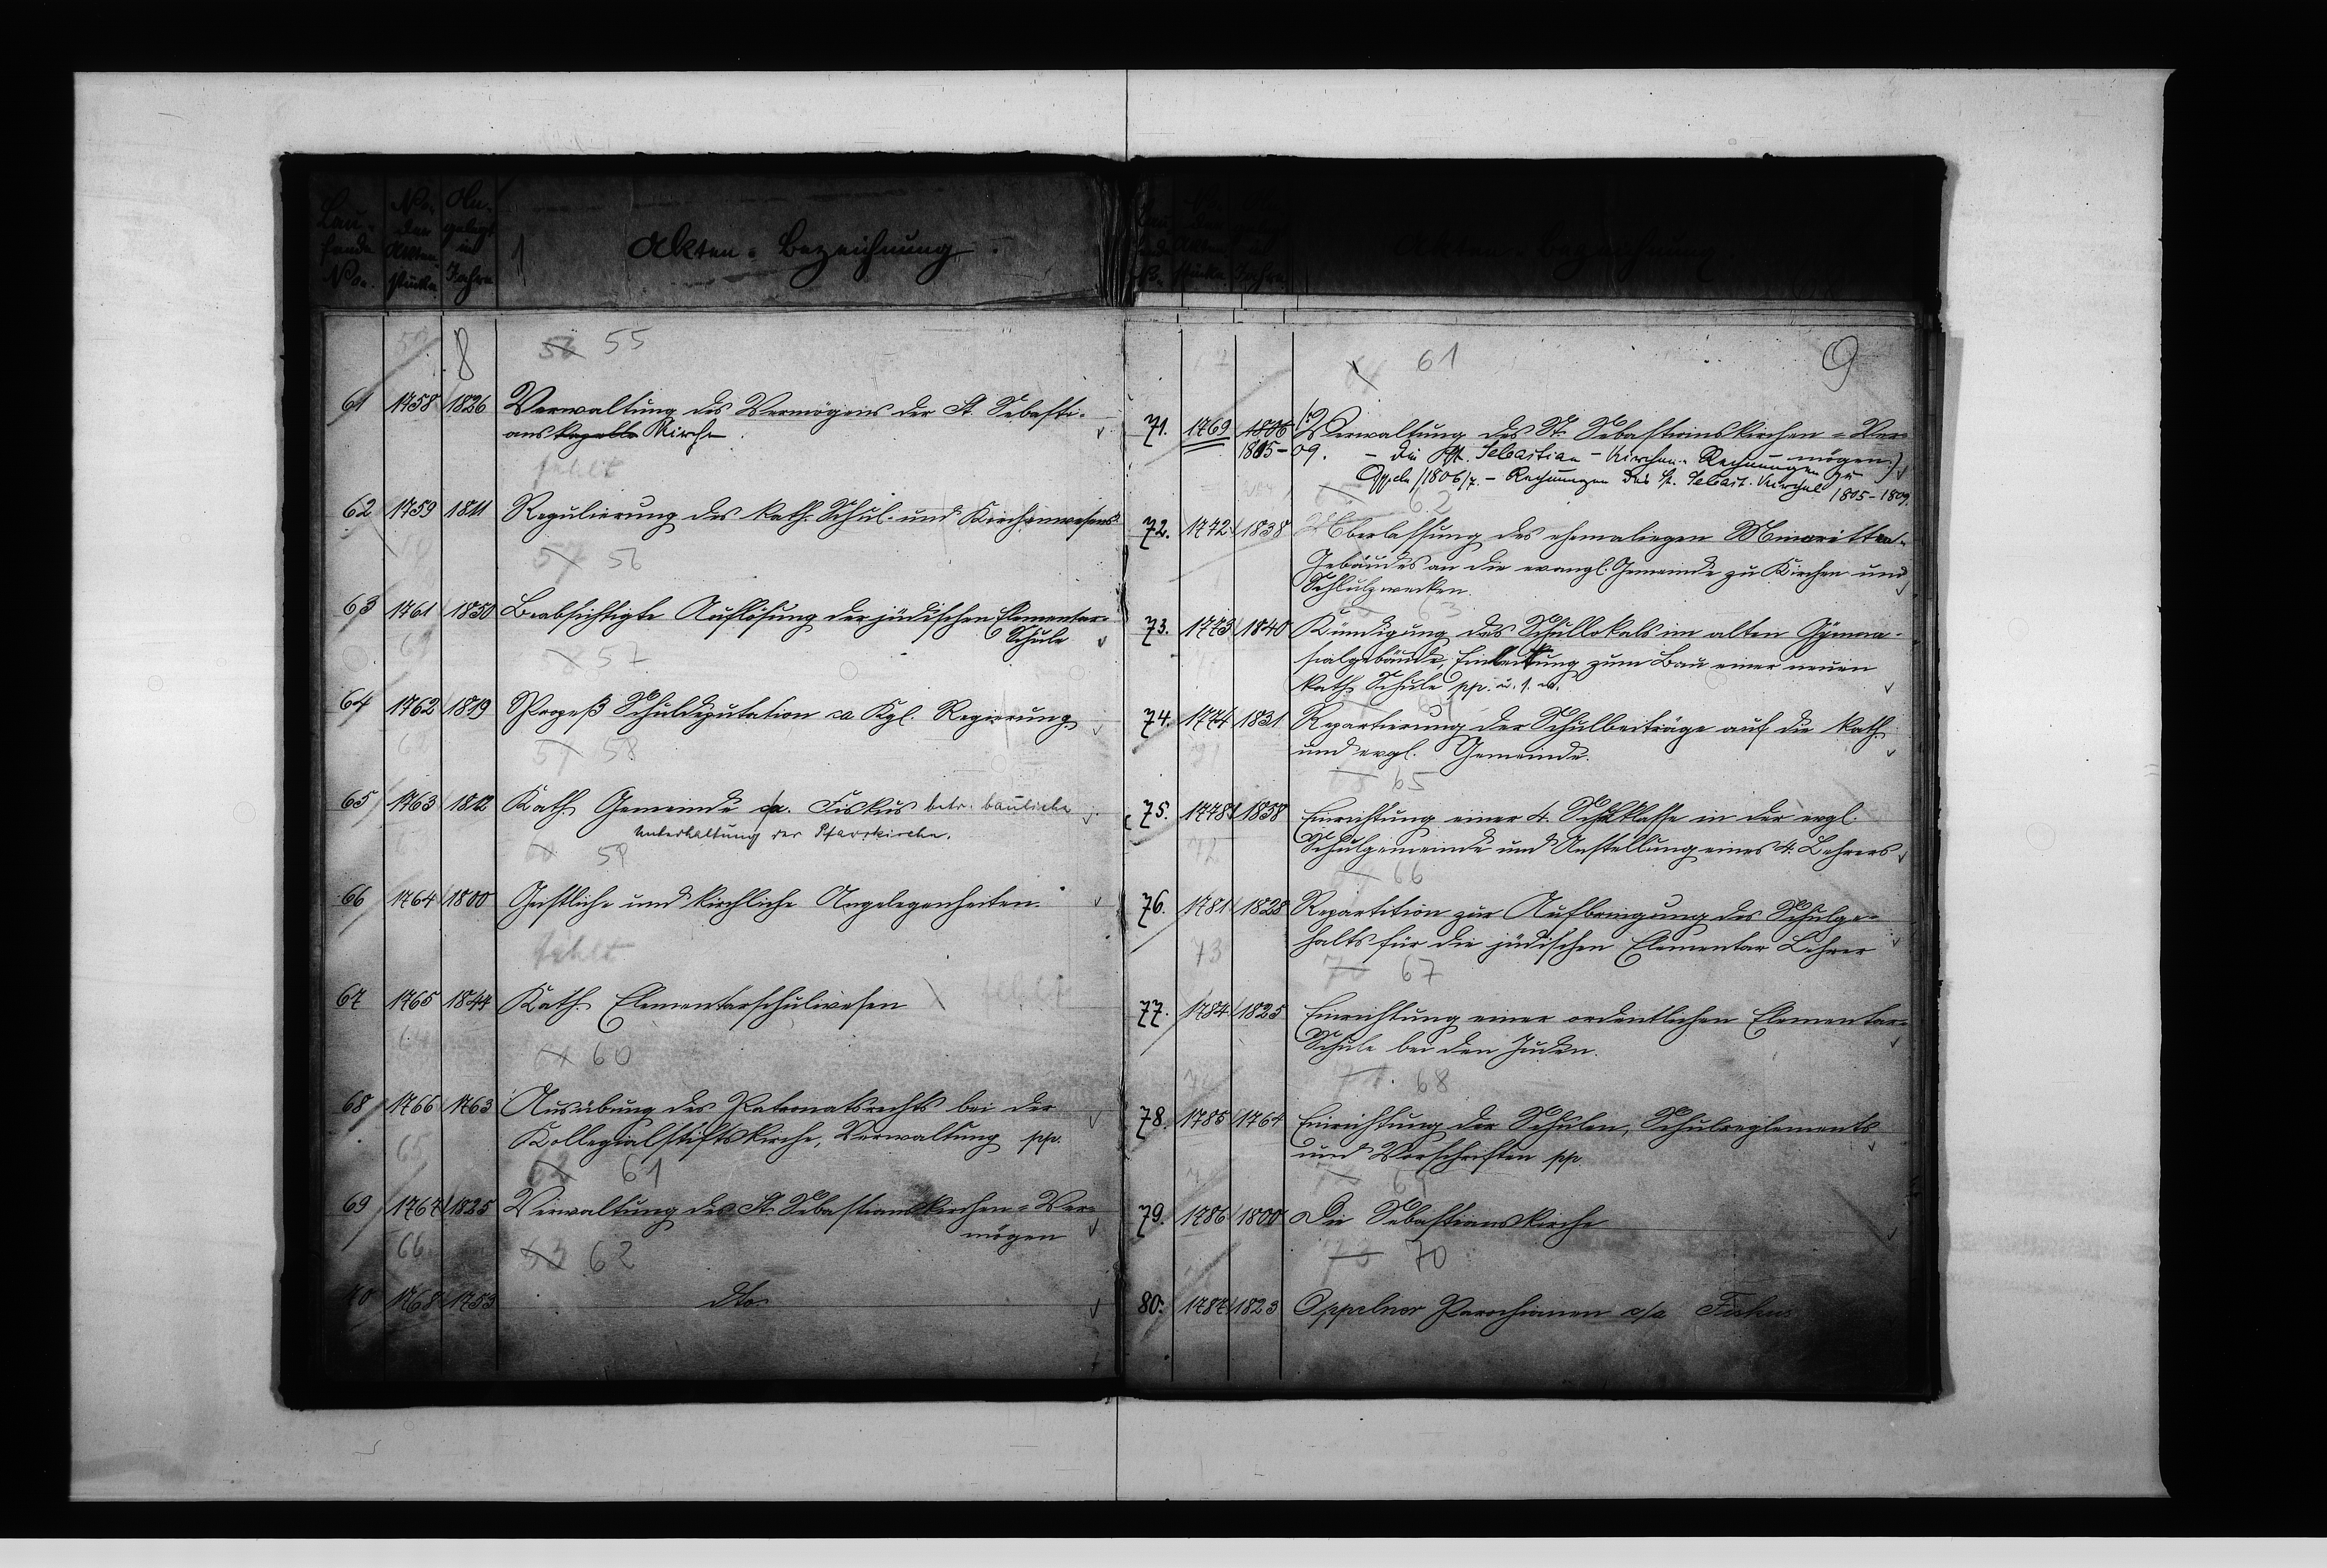 Lau-
fende
No.
No.
der
Akten-
stücke
An-
gelegt
im
Jahre
1
Akten-Bezeichnung.
8
56 55
61 1758 1826 Verwaltung des Vermögens der St. Sebasti-
anskapelle Kirche
fehlt
62 1759 1811 Regulierung des kath. Schul- und Kirchenwesens
57 56
63 1761 1850 Beabsichtigte Auflösung der jüdischen Elementar-
Schule
57
64 1762 1819 Prozeß Schuldeputation ca Kgl. Regierung
58
65 1763 1812 Kath. Gemeinde ca. Fiskus betr. bauliche
Unterhaltung der Pfarrkirche.
59
66 1764 1800 Geistliche und kirchliche Angelegenheiten.
fehlt
67 1765 1844 Kath. Elementarschulwesen fehlt
60
68 1766 1763 Ausübung des Patronatsrechts bei der
Kollegialstiftskirche, Verwaltung pp.
65
62 61
69 1767 1825 Verwaltung des St. Sebastianskirchen-Ver-
mögen
66
63 62
70 1768 1753 dto
Akten-Bezeichnung
61
9
71. 1769 1806 (Verwaltung des St. Sebastianskirchen-Ver-
mögen)
1805-09. - die St. Sebastian-Kirchen-Rechnungen zu
Oppeln 1806/7. - Rechnungen der St. Sebast. Kirche 1805-1809.
62
72. 1772 1838 Überlassung des ehemaligen Minoritten-
Gebäudes an die evangl. Gemeinde zu Kirchen und
Schulzwecken.
63
73. 1773 1840 Kündigung des Schullokals im alten Gymna-
sialgebäude, Einleitung zum Bau einer neuen
kath. Schule pp. u. s. w.
74. 1774 1831 Repartierung der Schulbeiträge auf die kath.
und evgl. Gemeinde.
71
65
75. 1778 1858 Einrichtung einer 4. Schulklasse in der evgl.
Schulgemeinde und Anstellung eines 4. Lehrers
72
66
76. 1781 1828 Repartition zur Aufbringung des Schulge-
halts für die jüdischen Elementar Lehrer
73
70 67
77. 1784 1825 Einrichtung einer ordentlichen Elementar-
Schule bei den Juden.
71. 68
78. 1785 1764 Einrichtung der Schulen, Schulreglements
und Vorschriften pp
69
79. 1786 1800 Die Sebastianskirche
70
80. 1787 1823 Oppelner Parochianen c/a Fiskus